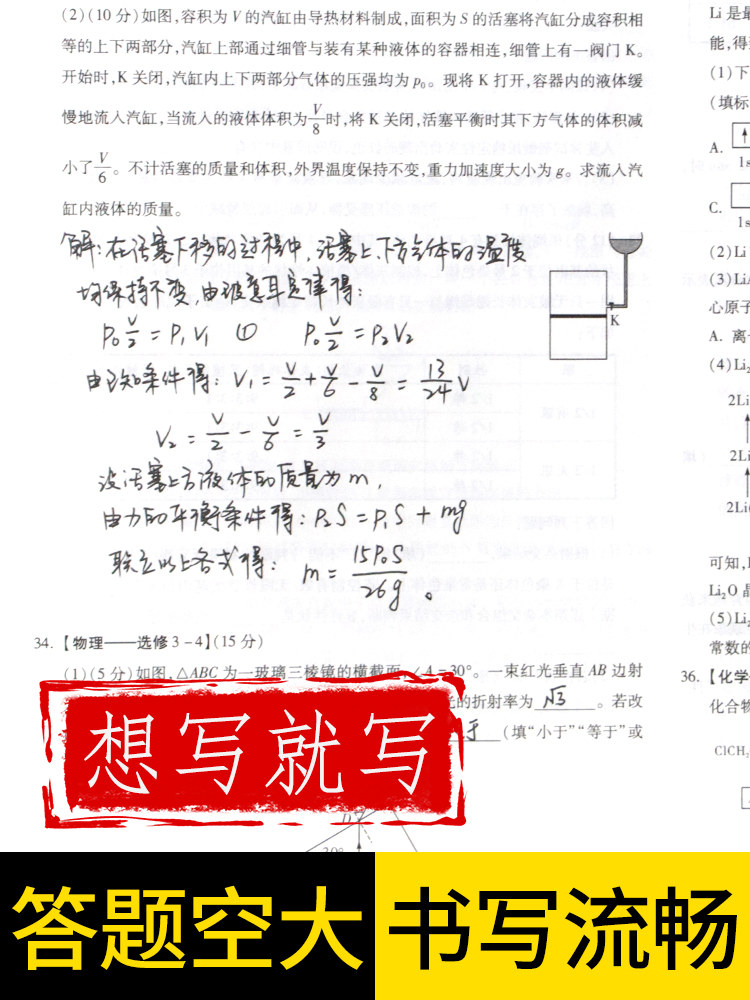 (2)(10分)如图,容积为V的汽缸由导热材料制成,面积为S的活塞将汽缸分成容积相
等的上下两部分,汽缸上部通过细管与装有某种液体的容器相连,细管上有一阀门K。
开始时,K关闭,汽缸内上下两部分气体的压强均为p₀。现将K打开,容器内的液体缓
慢地流入汽缸,当流入的液体体积为V/8时,将K关闭,活塞平衡时其下方气体的体积减
小了V/6。不计活塞的质量和体积,外界温度保持不变,重力加速度大小为g。求流入汽
缸内液体的质量。
解:在活塞下移的过程中,活塞上、下方气体的温度
均保持不变,由玻意耳定律得:
P₀V/2=P₁V₁ ① P₀V/2=P₂V₂
由已知条件得:V₁=V/2+V/6-V/8=13/24V
V₂=V/2-V/6=V/3
设活塞上方液体的质量为m,
由力的平衡条件得:P₂S=P₁S+mg
联立以上各式得:m=15P₀S/26g。
K
34.【物理——选修3-4】(15分)
(1)(5分)如图,△ABC为一玻璃三棱镜的横截面,∠A=30°。一束红光垂直AB边射
光的折射率为√3。若改
于(填“小于”“等于”或
D
30°
想写就写
答题空大
书写流畅
Li是最
能,得
(1)下
(填标
A.
1s
C.
1s
(2)Li
(3)LiA
心原子
A.离
(4)Li₂
2Li
2Li
2Li
可知,L
Li₂O晶
(5)Li₂
常数的
36.【化学
化合物
ClCH₂